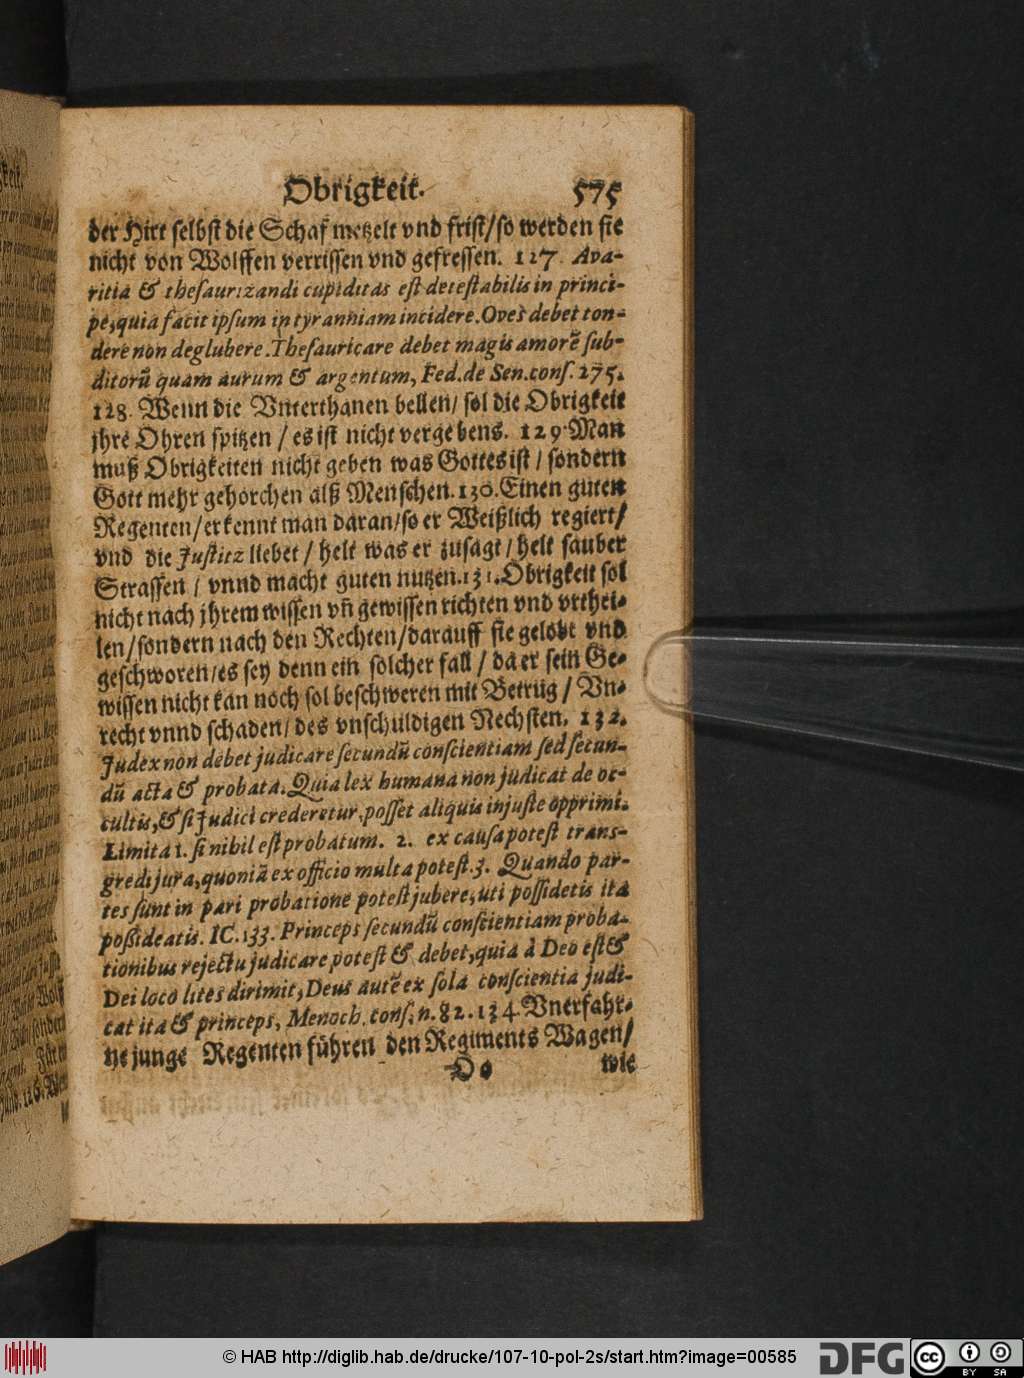 Obrigkeit. 575
der Hirt selbst die Schaf metzelt vnd frist/so werden sie
nicht von Wolffen verrissen vnd gefressen. 127. Ava-
ritia & thesaurizandi cupiditas est detestabilis in princi-
pe, quia facit ipsum in tyranniam incidere. Oves debet ton-
dere non deglubere. Thesauricare debet magis amorē sub-
ditorū quam aurum & argentum, Fed. de Sen. cons. 275.
128. Wenn die Vnterthanen bellen/ sol die Obrigkeit
jhre Ohren spitzen / es ist nicht vergebens. 129. Man
muß Obrigkeiten nicht geben was Gottes ist / sondern
Gott mehr gehorchen alß Menschen. 130. Einen guten
Regenten/erkennt man daran/so er Weißlich regiert/
vnd die Justitz liebet / helt was er zusagt / helt sauber
Strassen / vnnd macht guten nutzen. 131. Obrigkeit sol
nicht nach jhrem wissen vn̄ gewissen richten vnd vrthei-
len/sondern nach den Rechten/darauff sie gelobt vnd
geschworen/es sey denn ein solcher fall / da er sein Ge-
wissen nicht kan noch sol beschweren mit Betrug / Vn-
recht vnnd schaden/ des vnschuldigen Nechsten. 132.
Judex non debet judicare secundū conscientiam sed secun-
dū acta & probata. Quia lex humana non judicat de oc-
cultis, & si Judici crederetur, posset aliquis injuste opprimi.
Limita 1. si nihil est probatum. 2. ex causa potest trans-
gredi jura, quoniā ex officio multa potest. 3. Quando par-
tes sunt in pari probatione potest jubere, uti possidetis ita
possideatis. IC. 133. Princeps secundū conscientiam proba-
tionibus rejectu judicare potest & debet, quia à Deo est &
Dei loco lites dirimit, Deus autē ex sola conscientia judi-
cat ita & princeps, Menoch. cons. n. 82. 134. Vnerfahr-
ne junge Regenten führen den Regiments Wagen/
Oo wie
© HAB http://diglib.hab.de/drucke/107-10-pol-2s/start.htm?image=00585
DFG cc BY SA